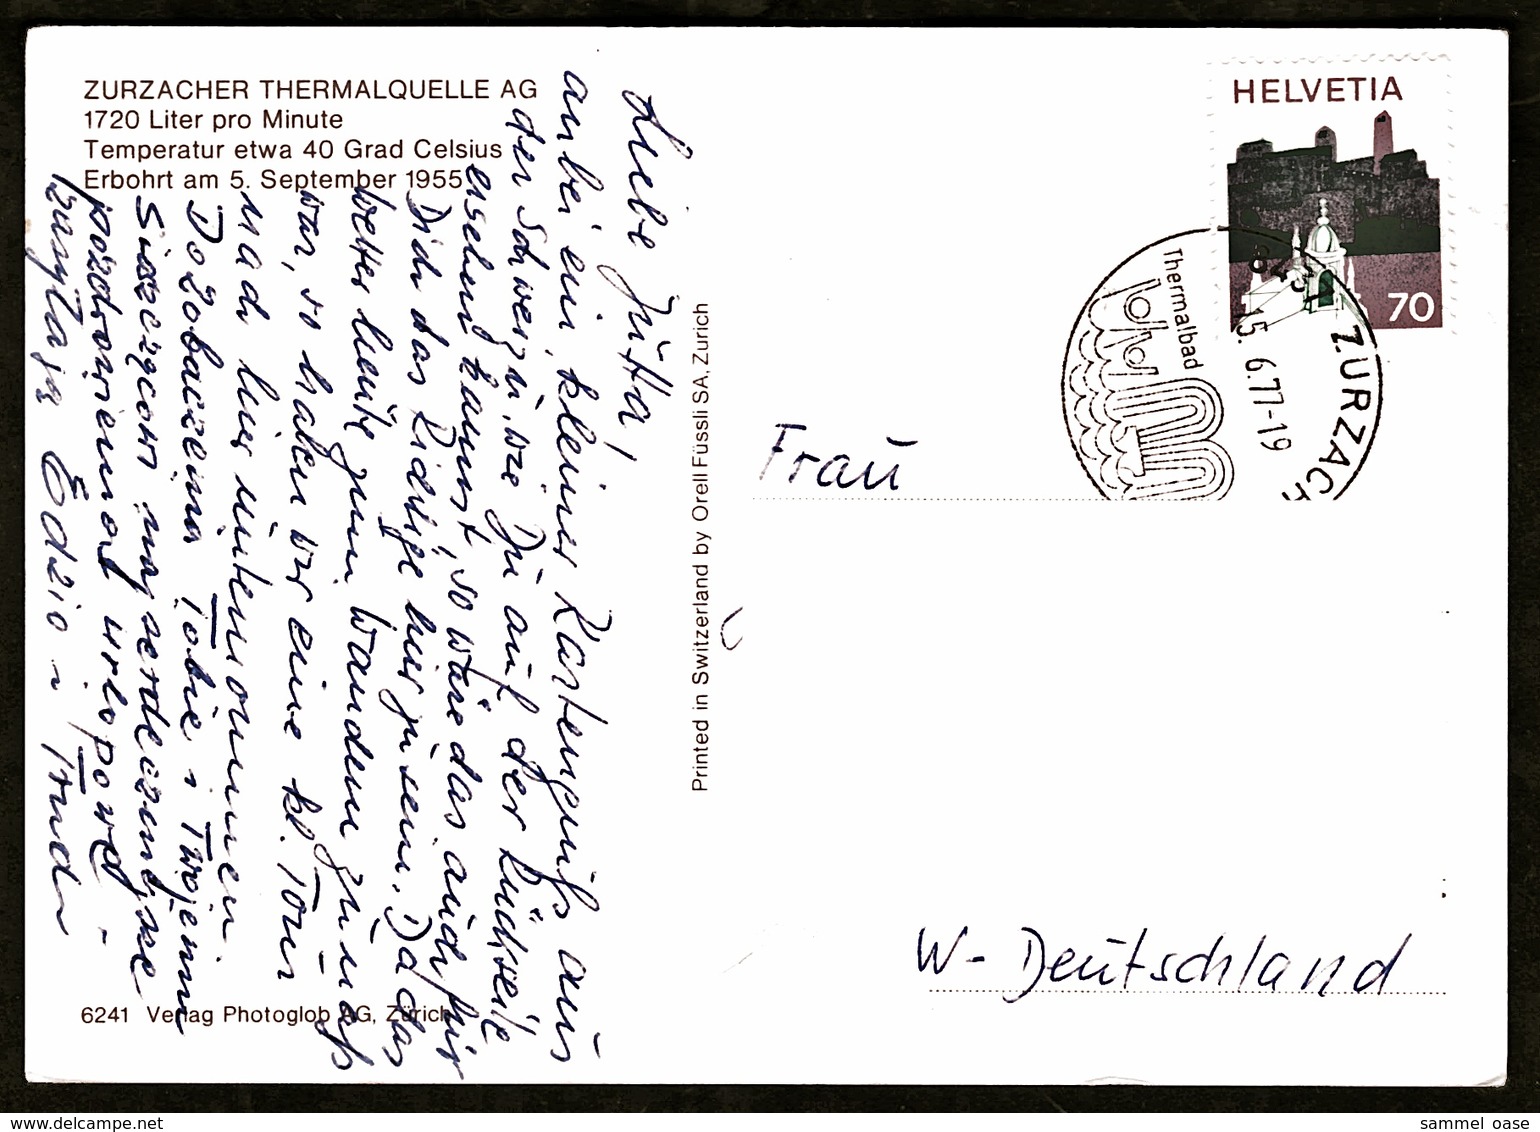 ZURZACHER THERMALQUELLE AG
1720 Liter pro Minute
Temperatur etwa 40 Grad Celsius
Erbohrt am 5. September 1955
Liebe Jutta!
anbei ein kleiner Kartengruß aus
der Schweiz u. wie Du auf der Rückseite
ersehen kannst, so wäre das auch für
Dich das Richtige hier zu sein. Da das
Wetter heute zum Wandern zu naß
war, so haben wir eine kl. Tour
nach hier unternommen
Do zobaczenia Tobie i Twojemu
najserdeczniejsze
pozdrowienia urlopowe
Edzio i Truda
6241 Verlag Photoglob AG, Zürich
Printed in Switzerland by Orell Füssli SA, Zurich
HELVETIA
70
ZURZACH
15. 6.77-19
Thermalbad
Frau
W-Deutschland
www.delcampe.net
sammel_oase